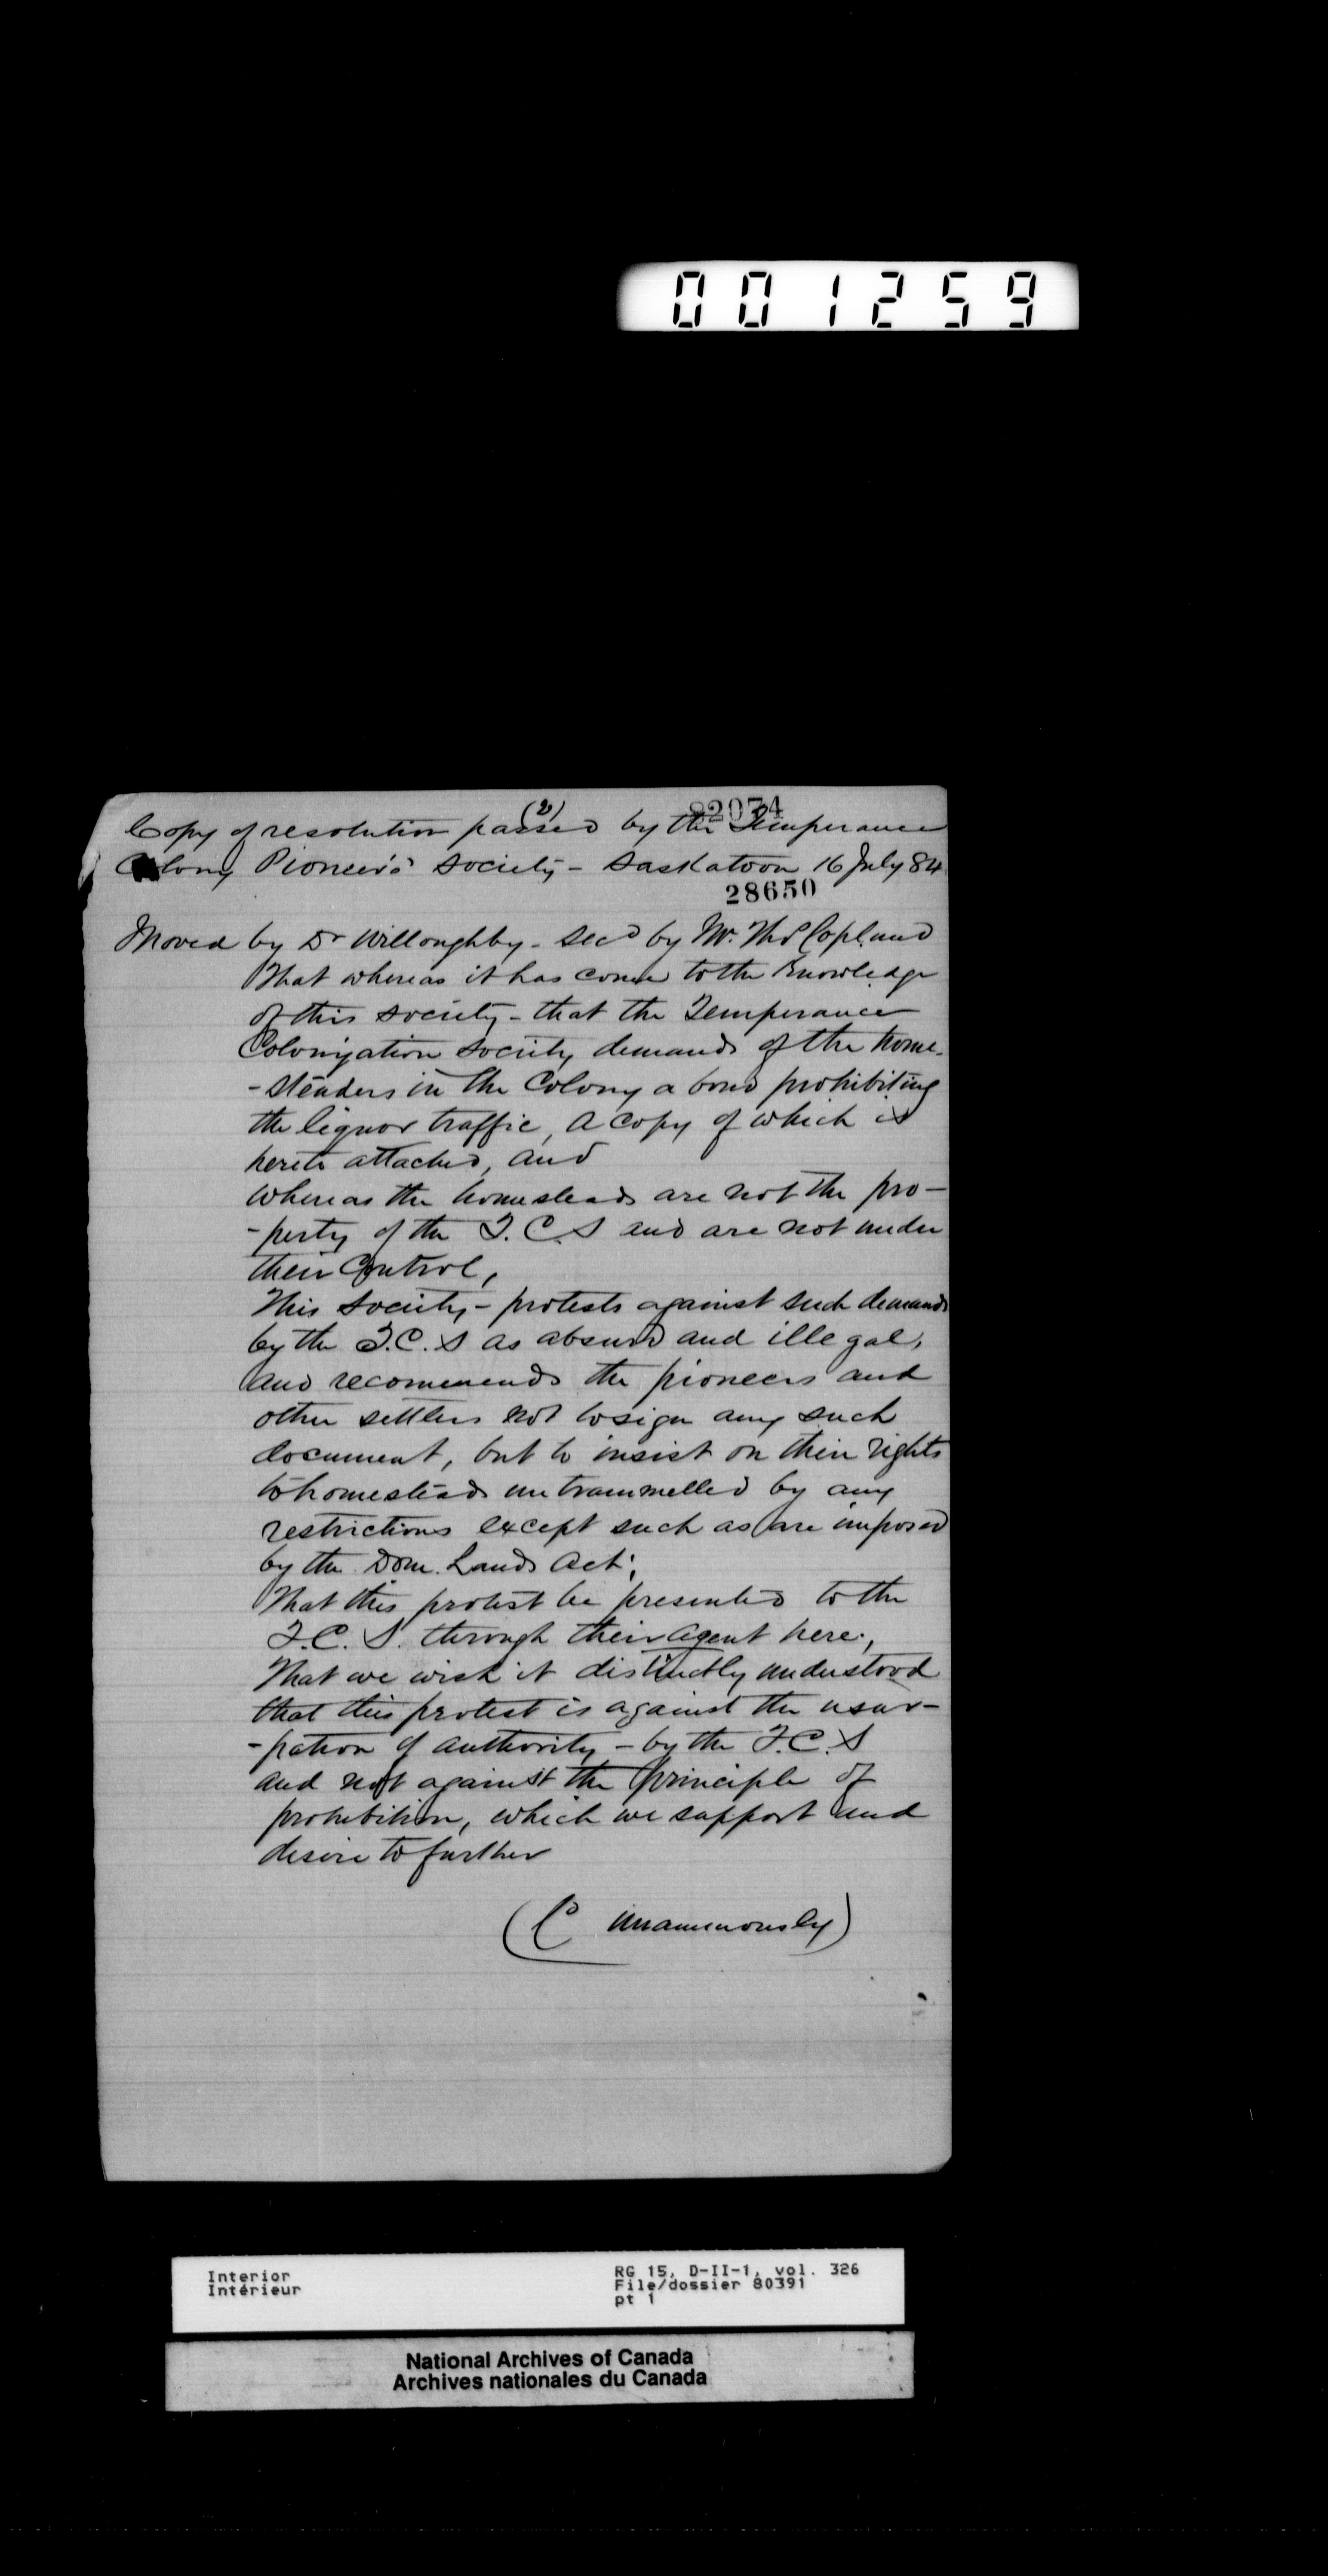 001259
(2)
82074
Copy of resolution passed by the Temperance
Colony Pioneer's Society - Saskatoon 16 July 84
28650
Moved by Dr Willoughby - Secd by Mr. Thos Copland
That whereas it has come to the knowledge
of this society - that the Temperance
Colonization Society demands of the home-
-steaders in the Colony a bond prohibiting
the liquor traffic, a copy of which is
hereto attached, and
Whereas the homesteads are not the pro-
-perty of the T.C.S and are not under
their Control,
This Society - protests against such demands
by the T.C.S as absurd and illegal,
and recommends the pioneers and
other settlers not to sign any such
document, but to insist on their rights
to homesteads untrammelled by any
restrictions except such as are imposed
by the Dom. Lands Act;
That this protest be presented to the
T.C.S. through their agent here;
That we wish it distinctly understood
that this protest is against the usur-
-pation of authority - by the T.C.S
and not against the principle of
prohibition, which we support and
desire to further
(C unanimously)
Interior
Intérieur
RG 15, D-II-1, vol. 326
File/dossier 80391
pt 1
National Archives of Canada
Archives nationales du Canada